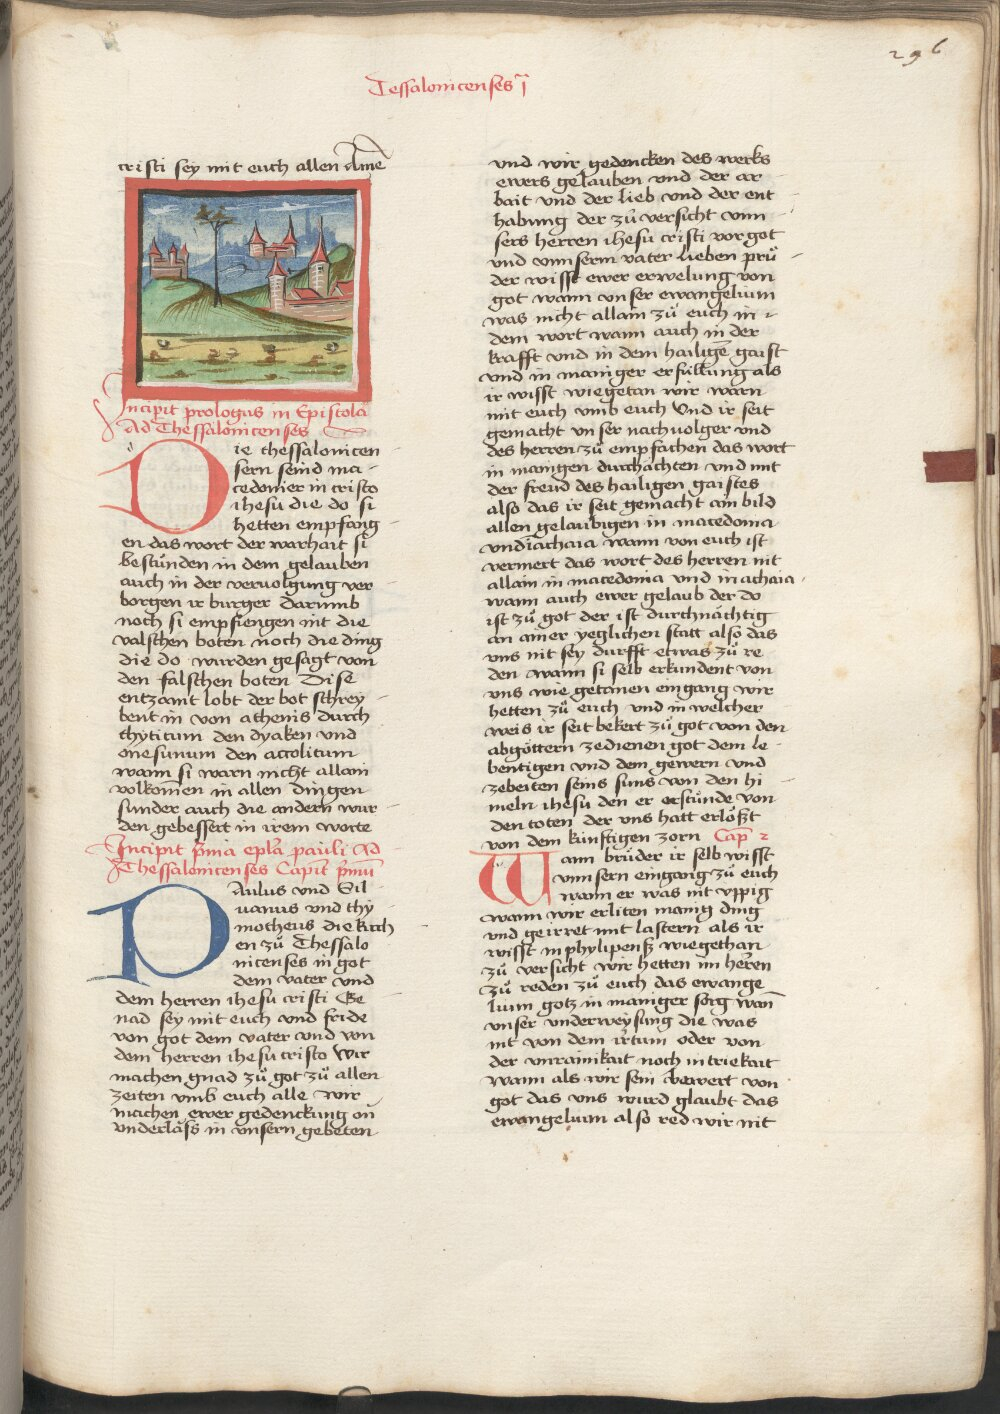 296
Tessalonicenses j
cristi sey mit euch allen Ame
Incipit prologus in Epistolā
Ad Thessalonicenses
Die thessalonicen
sern seind ma-
cedonier in cristo
ihesu die do si
hetten empfang-
en das wort der warhait si
bestůnden in dem gelauben
auch in der veruolgung ver
borgen ir burger Darumb
noch si empfiengen nit die
valschen boten noch die ding
die do wurden gesagt von
den falschen boten Dise
entzamt lobt der bot schrey-
bent in von athenis durch
thyticum den dyaken vnd
onesunum den accolitum
wann si warn nicht allain
volkom̄en in allen dingen
sunder auch die andern wur-
den gebessert in irem worte
Incipit p̄ma epl̄a pauli Ad
Thessalonicenses Capit̄ p̄mū
Paulus vnd Sil
uanus vnd thy
motheus die kirch
en zů Thessalo
nicenses in got
dem vater vnd
dem herren ihesu cristi Ge
nad sey mit euch vnd fride
von got dem vater vnd von
dem herren ihesu cristo Wir
machen gnad zů got zů allen
zeiten vmb euch alle wir
machen ewer gedenckung on
vnderläss in vnsern gebeten
vnd wir gedencken des werks
ewers gelauben vnd der ar
bait vnd der lieb vnd der ent
habung der zů versicht vnn-
sers herren ihesu cristi vor got
vnd vnnserm vater lieben prů
der wisst ewer erwelung von
got wann vnser ewangelium
was nicht allain zů euch in
dem wort wann auch in der
krafft vnd in dem hailigē gaist
vnd in maniger erfüllung als
ir wisst wiegetan wir warn
mit euch vmb euch Vnd ir seit
gemacht vnser nachuolger vnd
des herren zů empfachen das wort
in manigen durchächten vnd mit
der freud des hailigen gaistes
also das ir seit gemacht ain bild
allen gelaubigen in macedonia
vnd in achaia wann von euch ist
vermert das wort des herren nit
allain in macedonia vnd in achaia
wann auch ewer gelaub der do
ist zů got der ist durchnächtig
an ainer yeglichen statt also das
vns nit sey durfft etwas zů re
den wann si selb erkundent von
vns wie getanen eingang wir
hetten zů euch vnd in welcher
weis ir seit bekert zů got von den
abgöttern zedienen got dem le-
bentigen vnd dem gewern vnd
zebeiten seins suns von den hi
meln ihesu den er erstůnde von
den toten der vns hatt erlößt
von dem künftigen zorn Cap 2
Wann brüder ir selb wisst
vnnsern eingang zů euch
wann er was nit vppig
wann wir erliten manig ding
vnd geirret mit lastern als ir
wisst in phylipenß wiegethan
zů versicht wir hetten im herren
zů reden zů euch das ewange
lium gotz in maniger sorg wan̄
vnser vnderweysung die was
nit von dem irrtum oder von
der vnrainikait noch in triekait
wann als wir sein bewert von
got das vns wurd glaubt das
ewangelium also red wir nit